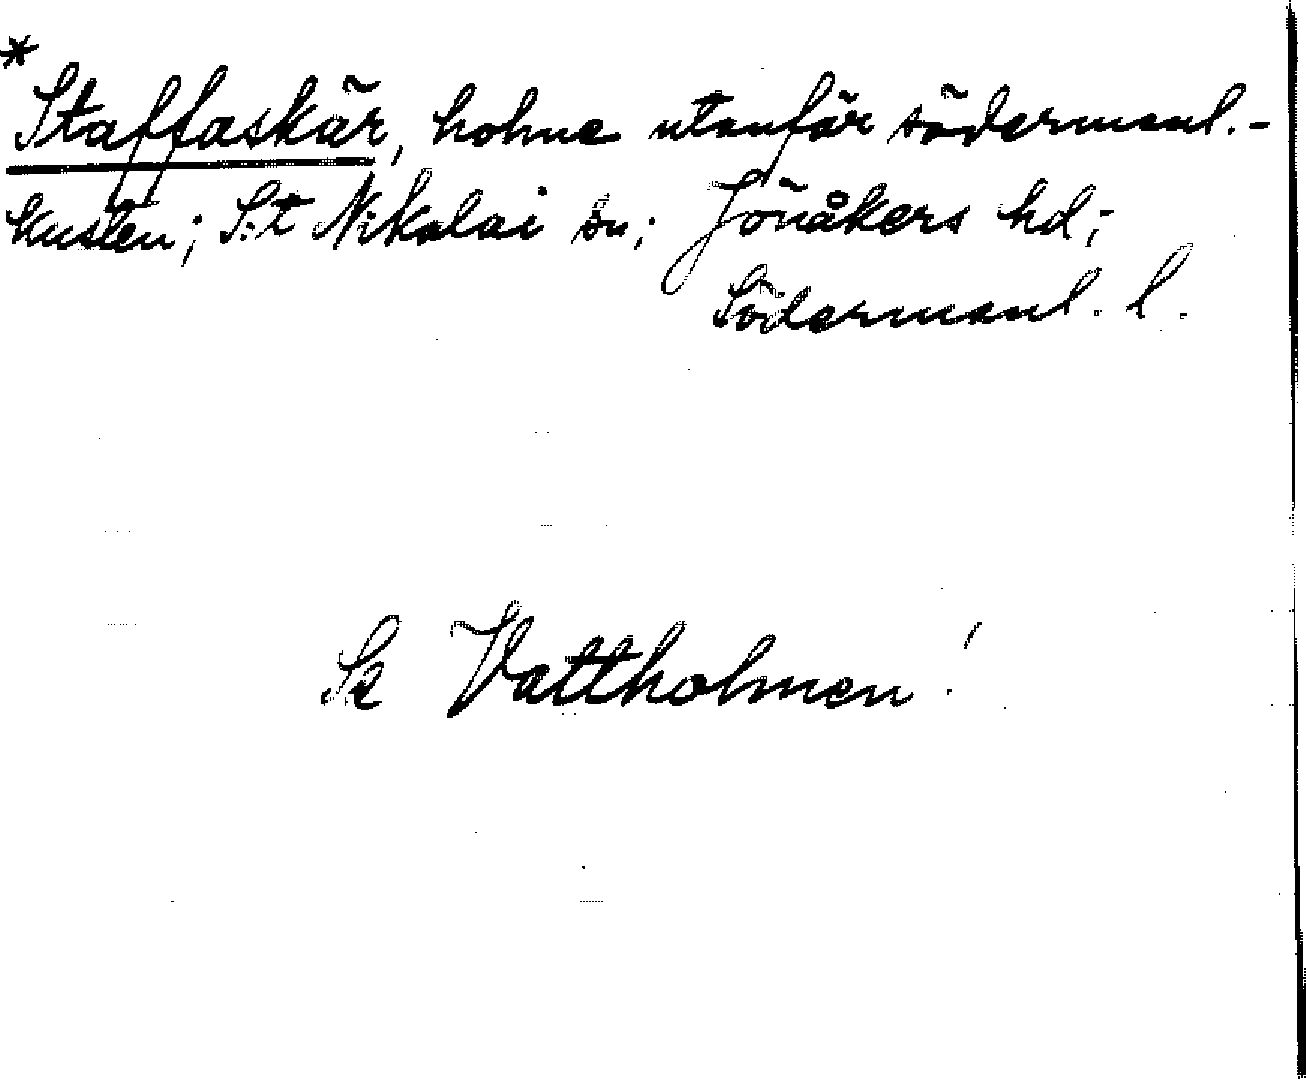 *
Staffaskär, holme utanför södermanl.-
kusten; S:t Nikolai sn; Jönåkers hd;
Södermanl. l.
Se Vattholmen!